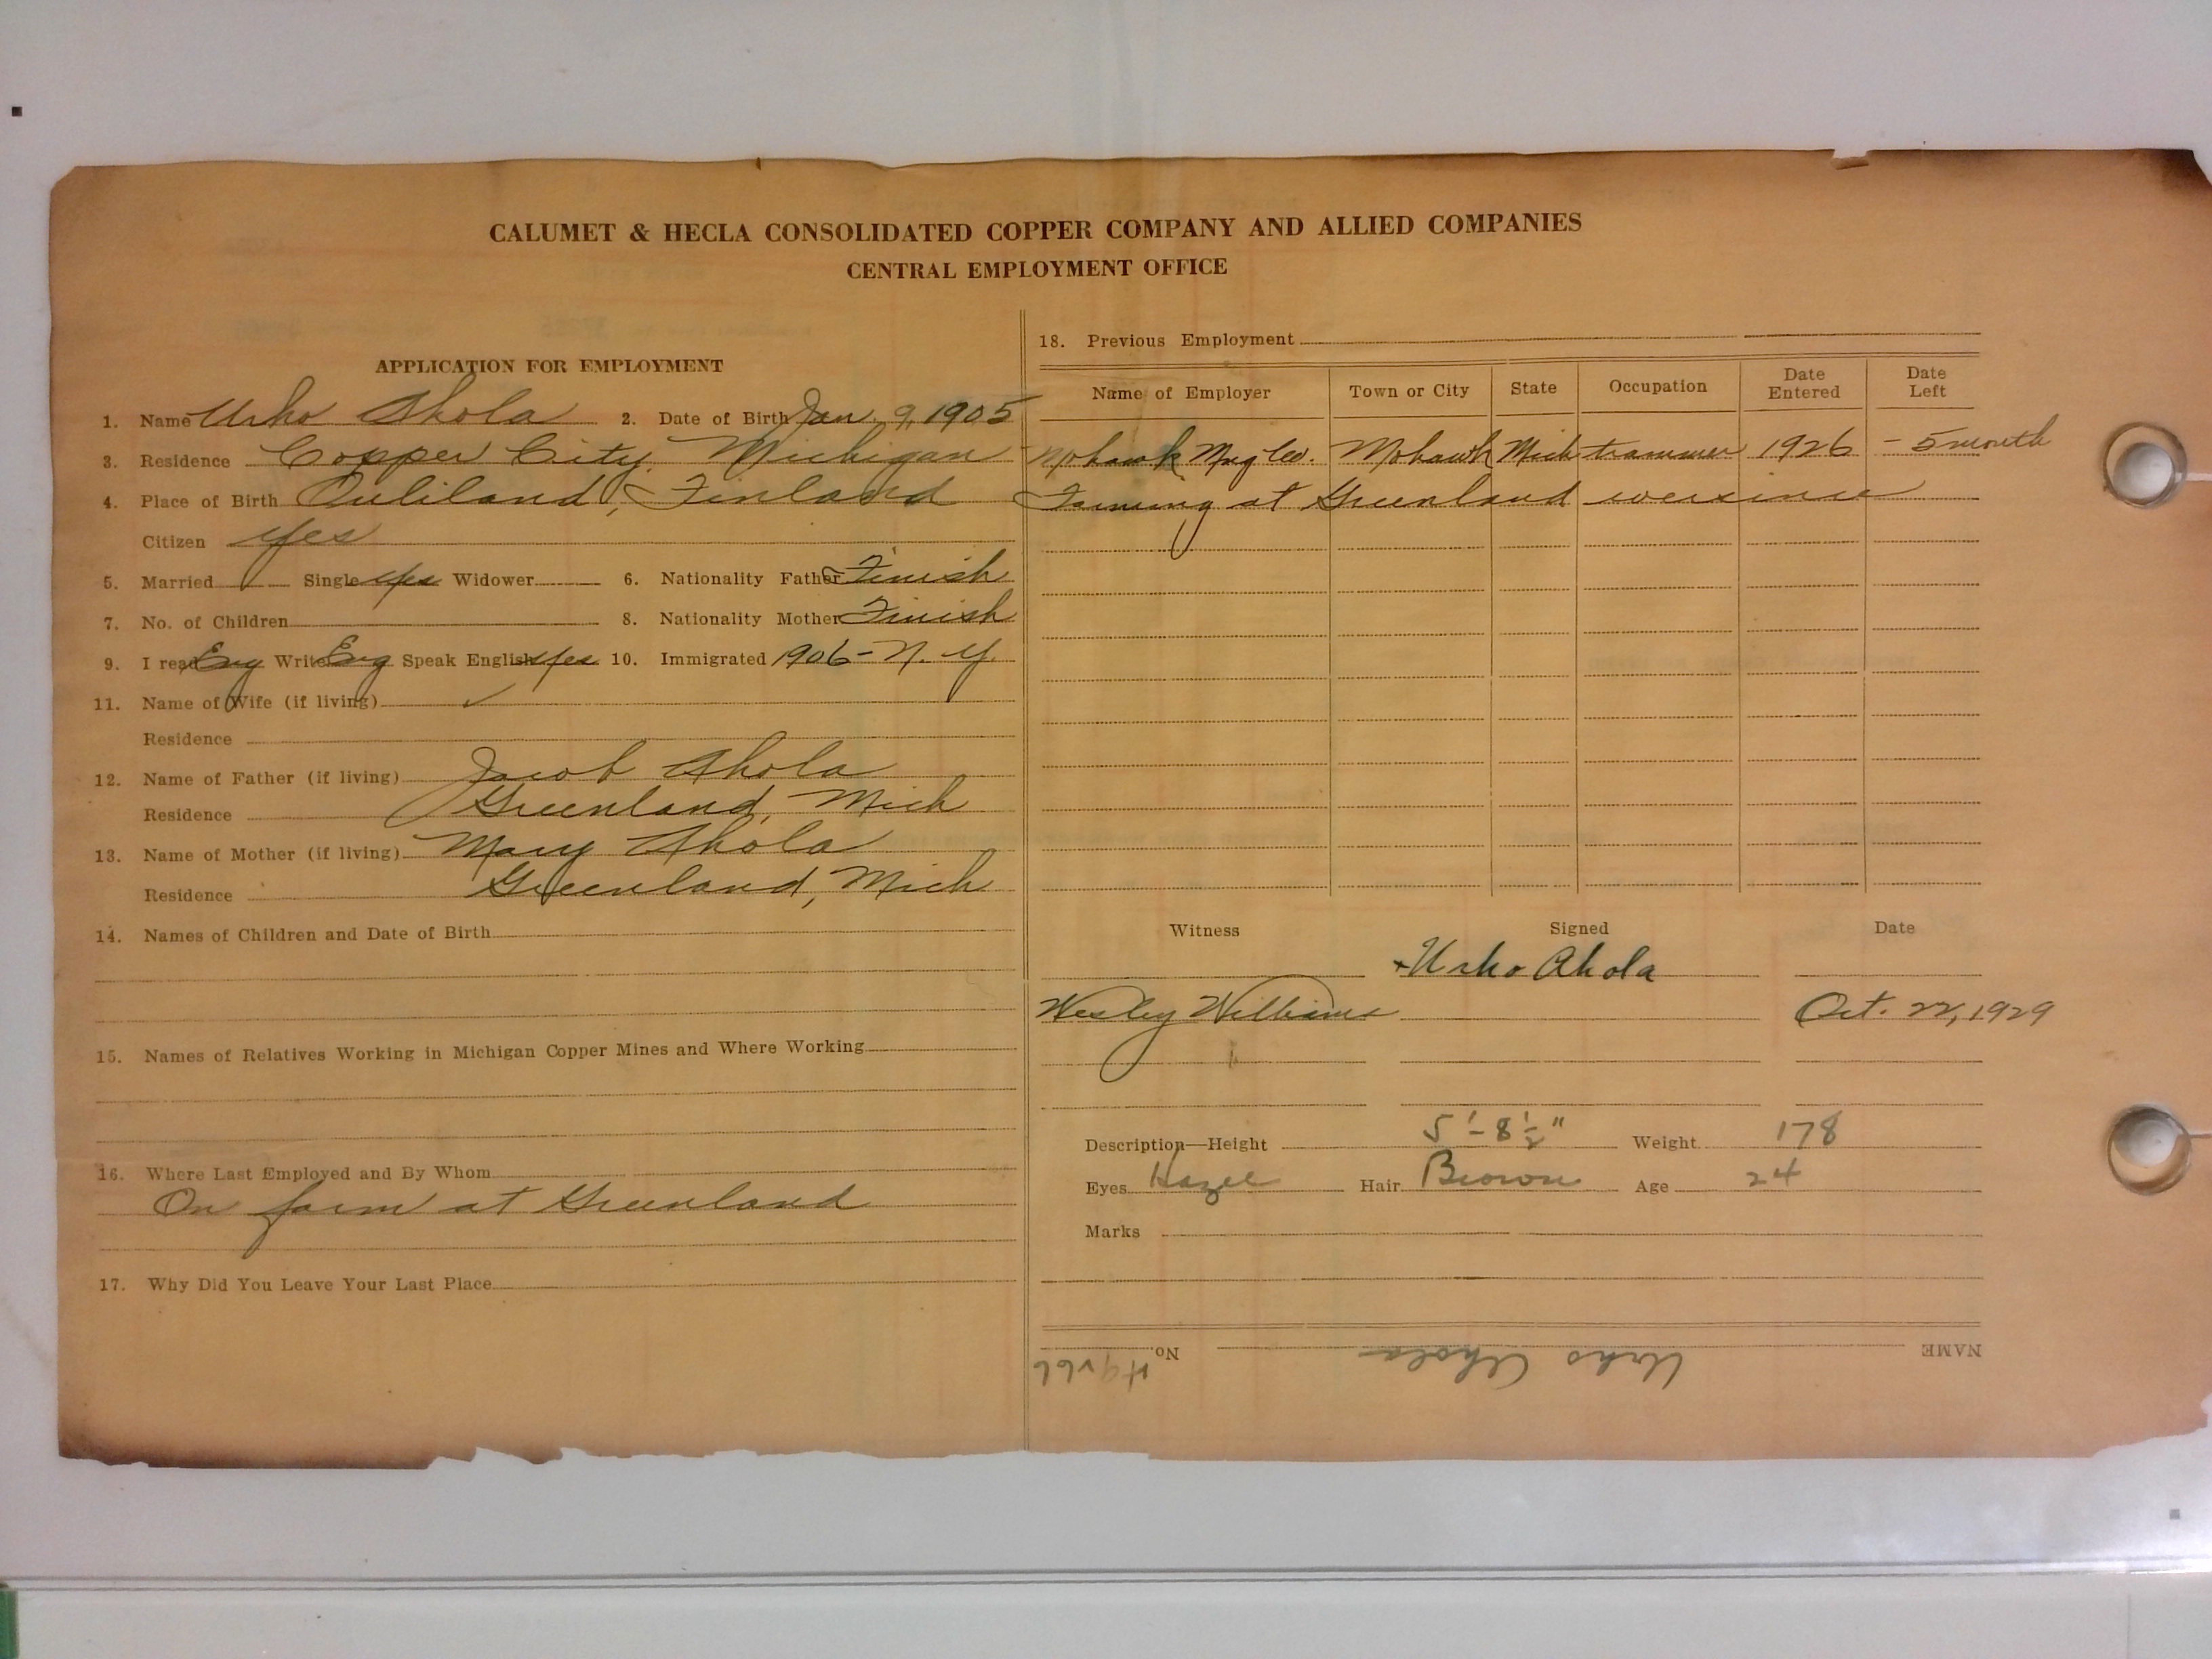 CALUMET & HECLA CONSOLIDATED COPPER COMPANY AND ALLIED COMPANIES
CENTRAL EMPLOYMENT OFFICE
APPLICATION FOR EMPLOYMENT
1. Name Urho Ahola 2. Date of Birth Jan. 9, 1905
3. Residence Copper City, Michigan
4. Place of Birth Ouliland, Finland
Citizen yes
5. Married Single yes Widower 6. Nationality Father Finish
7. No. of Children 8. Nationality Mother Finish
9. I read Eng Write Eng Speak English yes 10. Immigrated 1906 - N. Y.
11. Name of Wife (if living) ✓
Residence
12. Name of Father (if living) Jacob Ahola
Residence Greenland, Mich
13. Name of Mother (if living) Mary Ahola
Residence Greenland, Mich
14. Names of Children and Date of Birth
15. Names of Relatives Working in Michigan Copper Mines and Where Working
16. Where Last Employed and By Whom
On farm at Greenland
17. Why Did You Leave Your Last Place
18. Previous Employment
Name of Employer Town or City State Occupation Date Entered Date Left
Mohawk Mng Co. Mohawk Mich trammer 1926 - 5 month
Farming at Greenland eversince
Witness Signed Date
Urho Ahola
Wesley Williams Oct. 22, 1929
Description—Height 5'-8½" Weight 178
Eyes Hazel Hair Brown Age 24
Marks
NAME Urho Ahola No.